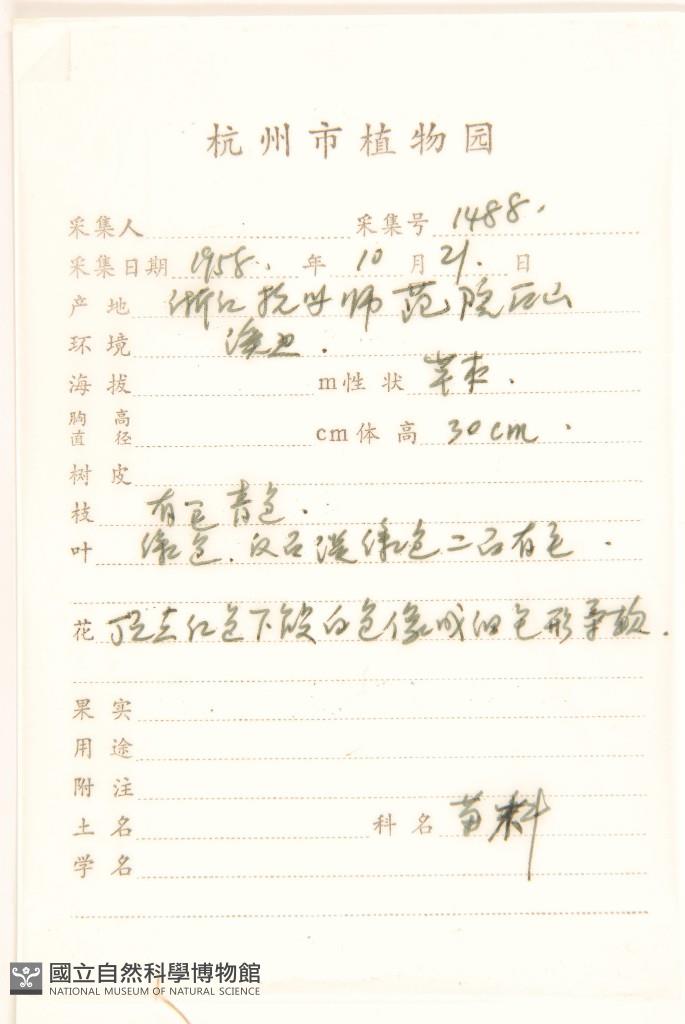 杭州市植物园
采集人 采集号 1488.
采集日期 1958. 年 10 月 21. 日
产地 浙江杭州师范院后山
环境
海拔 m 性状 草本.
胸高直径 cm 体高 30cm.
树皮
枝 有毛青色.
叶 绿色.反面淡绿色二面有毛.
花 顶点红色下部白色像成细毛形柔软.
果实
用途
附注
土名 科名 菊科
学名
國立自然科學博物館
NATIONAL MUSEUM OF NATURAL SCIENCE